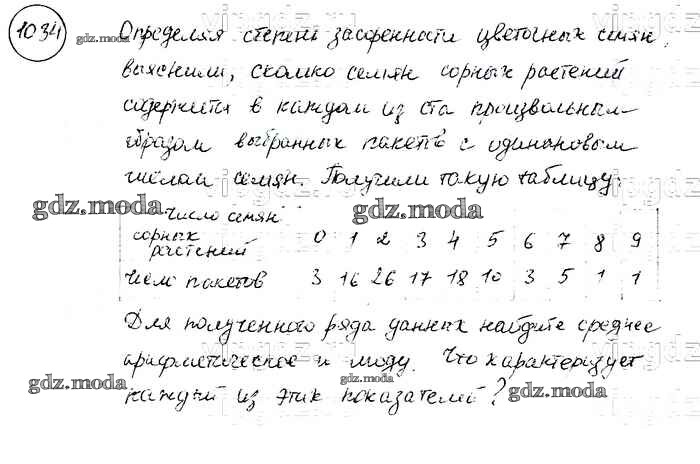 1034
Определяя степень засоренности цветочных семян,
выяснили, сколько семян сорных растений
содержится в каждом из ста произвольным
образом выбранных пакетов с одинаковым
числом семян. Получили такую таблицу:
Число семян
сорных
растений 0 1 2 3 4 5 6 7 8 9
Число пакетов 3 16 26 17 18 10 3 5 1 1
Для полученного ряда данных найдите среднее
арифметическое и моду. Что характеризует
каждый из этих показателей?
gdz.moda
gdz.moda
gdz.moda
gdz.moda
gdz.moda
gdz.moda
gdz.moda